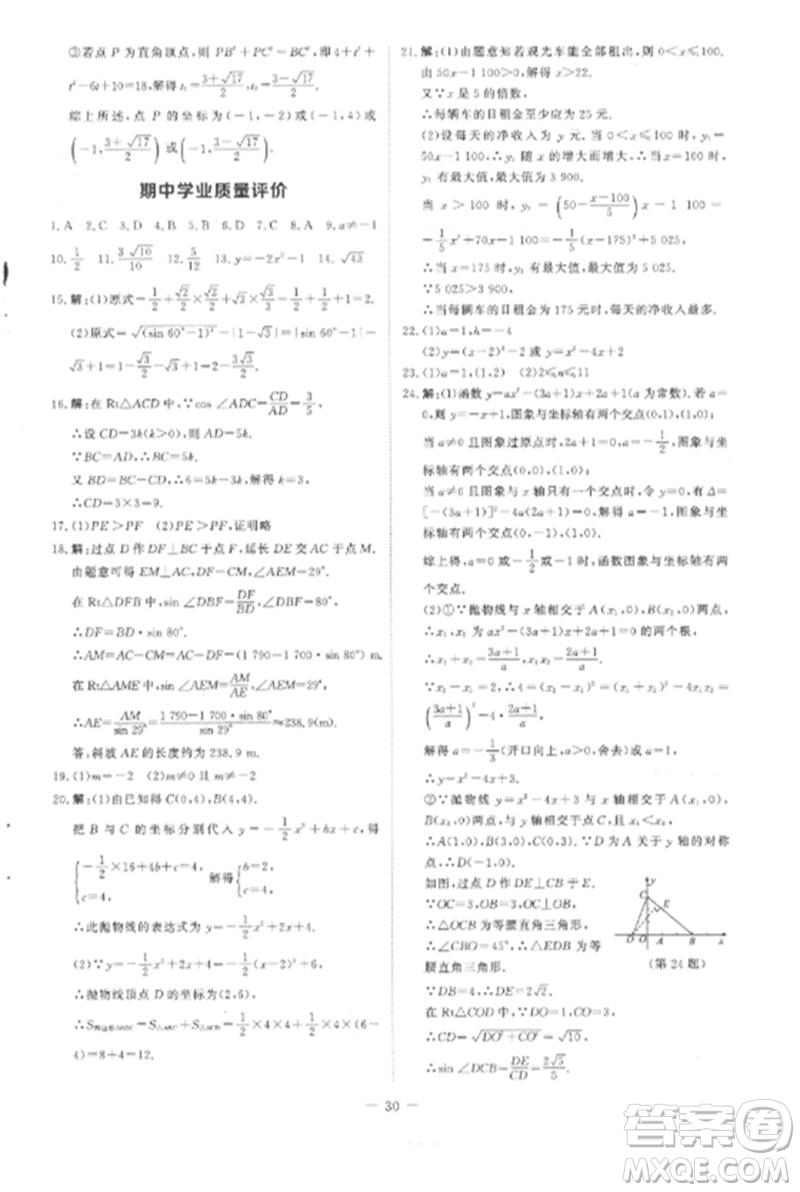 ③若点 P 为直角顶点，则 PB²+PC²=BC²，即 t²+4+t²
-6t+10=18，解得 t₁=(3+√17)/2，t₂=(3-√17)/2.
综上所述，点 P 的坐标为(-1,-2)或(-1,4)或
(-1,(3+√17)/2)或(-1,(3-√17)/2).
期中学业质量评价
1.A 2.C 3.D 4.A 5.D 6.B 7.B 8.A 9.a≠-1
10.1/2 11.3√10/10 12.5/12 13.y=-2x²-1 14.√43
15.解:(1)原式=1/2+√3/2×√3/2+√3×√3/3=1/2+1/2+1=2.
(2)原式=√((sin 60°-1)²)-|1-√3|=|sin 60°-1|
+1-√3=1-√3/2+1-√3=2-3√3/2.
16.解:在 Rt△ACD 中，∵cos ∠ADC=CD/AD=3/5，
∴设 CD=3k(k>0)，则 AD=5k.
∵BC=AD，∴BC=5k.
又 BD=BC-CD，∴6=5k-3k，∴k=3，
∴CD=3×3=9.
17.(1)PE>PF (2)PE>PF，证明略
18.解:过点 D 作 DF⊥BC 于点 F，延长 DE 交 AC 于点 M.
由题意可得 EM⊥AC，DF=MC，∠AEM=29°.
在 Rt△DFB 中，sin ∠DBF=DF/BD，∠DBF=80°，
∴DF=BD·sin 80°，
∴AM=AC-CM=(1 790-1 700·sin 80°) m.
在 Rt△AME 中，sin ∠AEM=AM/AE，∠AEM=29°，
∴AE=AM/sin 29°=(1 790-1 700·sin 80°)/sin 29°≈238.9(m).
答:斜坡 AE 的长度约为 238.9 m.
19.(1)m=-2 (2)m≠0 且 m≠-2
20.解:(1)由已知得 C(0,4)，B(4,4).
把 B 与 C 的坐标分别代入 y=-1/2x²+bx+c，得
{-1/2×16+4b+c=4, c=4, 解得{b=2, c=4.
∴此抛物线的表达式为 y=-1/2x²+2x+4.
(2)∵y=-1/2x²+2x+4=-1/2(x-2)²+6，
∴抛物线顶点 D 的坐标为(2,6)，
∴S四边形ABDC=S△ABC+S△BCD=1/2×4×4+1/2×4×
2=8+4=12.
21.解:(1)由题意知若观光车能全部租出，则 0<x≤100.
由 50x-1 100>0，解得 x>22.
又∵x 是 5 的倍数，
∴每辆车的日租金至少应为 25 元.
(2)设每天的净收入为 y 元. 当 0<x≤100 时，y₁=
50x-1 100，y₁ 随 x 的增大而增大，∴当 x=100 时，
y₁ 有最大值，最大值为 3 900.
当 x>100 时，y₂=(50-(x-100)/5)x-1 100=
-1/5x²+70x-1 100=-1/5(x-175)²+5 025，
∴当 x=175 时，y₂ 有最大值，最大值为 5 025.
∵5 025>3 900，
∴当每辆车的日租金为 175 元时，每天的净收入最多.
22.(1)a=1,h=-4
(2)y=(x-2)²-2 或 y=x²-4x+2
23.(1)x=1，(1,2) (2)2≤n≤11
24.解:(1)函数 y=ax²-(3a+1)x+2a+1(a 为常数). 若 a=
0，则 y=-x+1，图象与坐标轴有两个交点(0,1)，(1,0)；
当 a≠0 且图象过原点时，2a+1=0，a=-1/2，图象与坐
标轴有两个交点(0,0)，(1,0)；
当 a≠0 且图象与 x 轴只有一个交点时，令 y=0 有 Δ=
[-(3a+1)]²-4a(2a+1)=0，解得 a=-1.
综上得，a=0 或-1 或-1/2时，函数图象与坐标轴有两
个交点.
(2)①∵抛物线与 x 轴相交于 A(x₁,0)，B(x₂,0)两点，
∴x₁，x₂ 为 ax²-(3a+1)x+2a+1=0 的两个根，
∴x₁+x₂=(3a+1)/a，x₁x₂=(2a+1)/a.
∵x₂-x₁=2，∴4=(x₂-x₁)²=(x₁+x₂)²-4x₁x₂=
((3a+1)/a)²-4·(2a+1)/a，
解得 a=-1/3(开口向上，a>0，舍去)或 a=1，
∴y=x²-4x+3.
②∵抛物线与 x 轴相交于 A(x₁,0)，B(x₂,0)两点，
且 x₁<x₂，
∴A(1,0)，B(3,0). ∵D 为 A 关于 y 轴的对称
点，∴D(-1,0).
如图，过点 D 作 DE⊥CB 于点 E.
∵OC=3，OB=3，OC⊥OB，
∴△OCB 为等腰直角三角形，
∴∠CBO=45°，∴△EDB 为等
腰直角三角形.
∵DB=4，∴DE=2√2.
在 Rt△COD 中，∵DO=1，CO=3，
∴CD=√(DO²+CO²)=√10，
∴sin ∠DCB=DE/CD=2√5/5.
y
C
E
D O A B x
(第 24 题)
— 30 —
答案圈
MXQE.COM